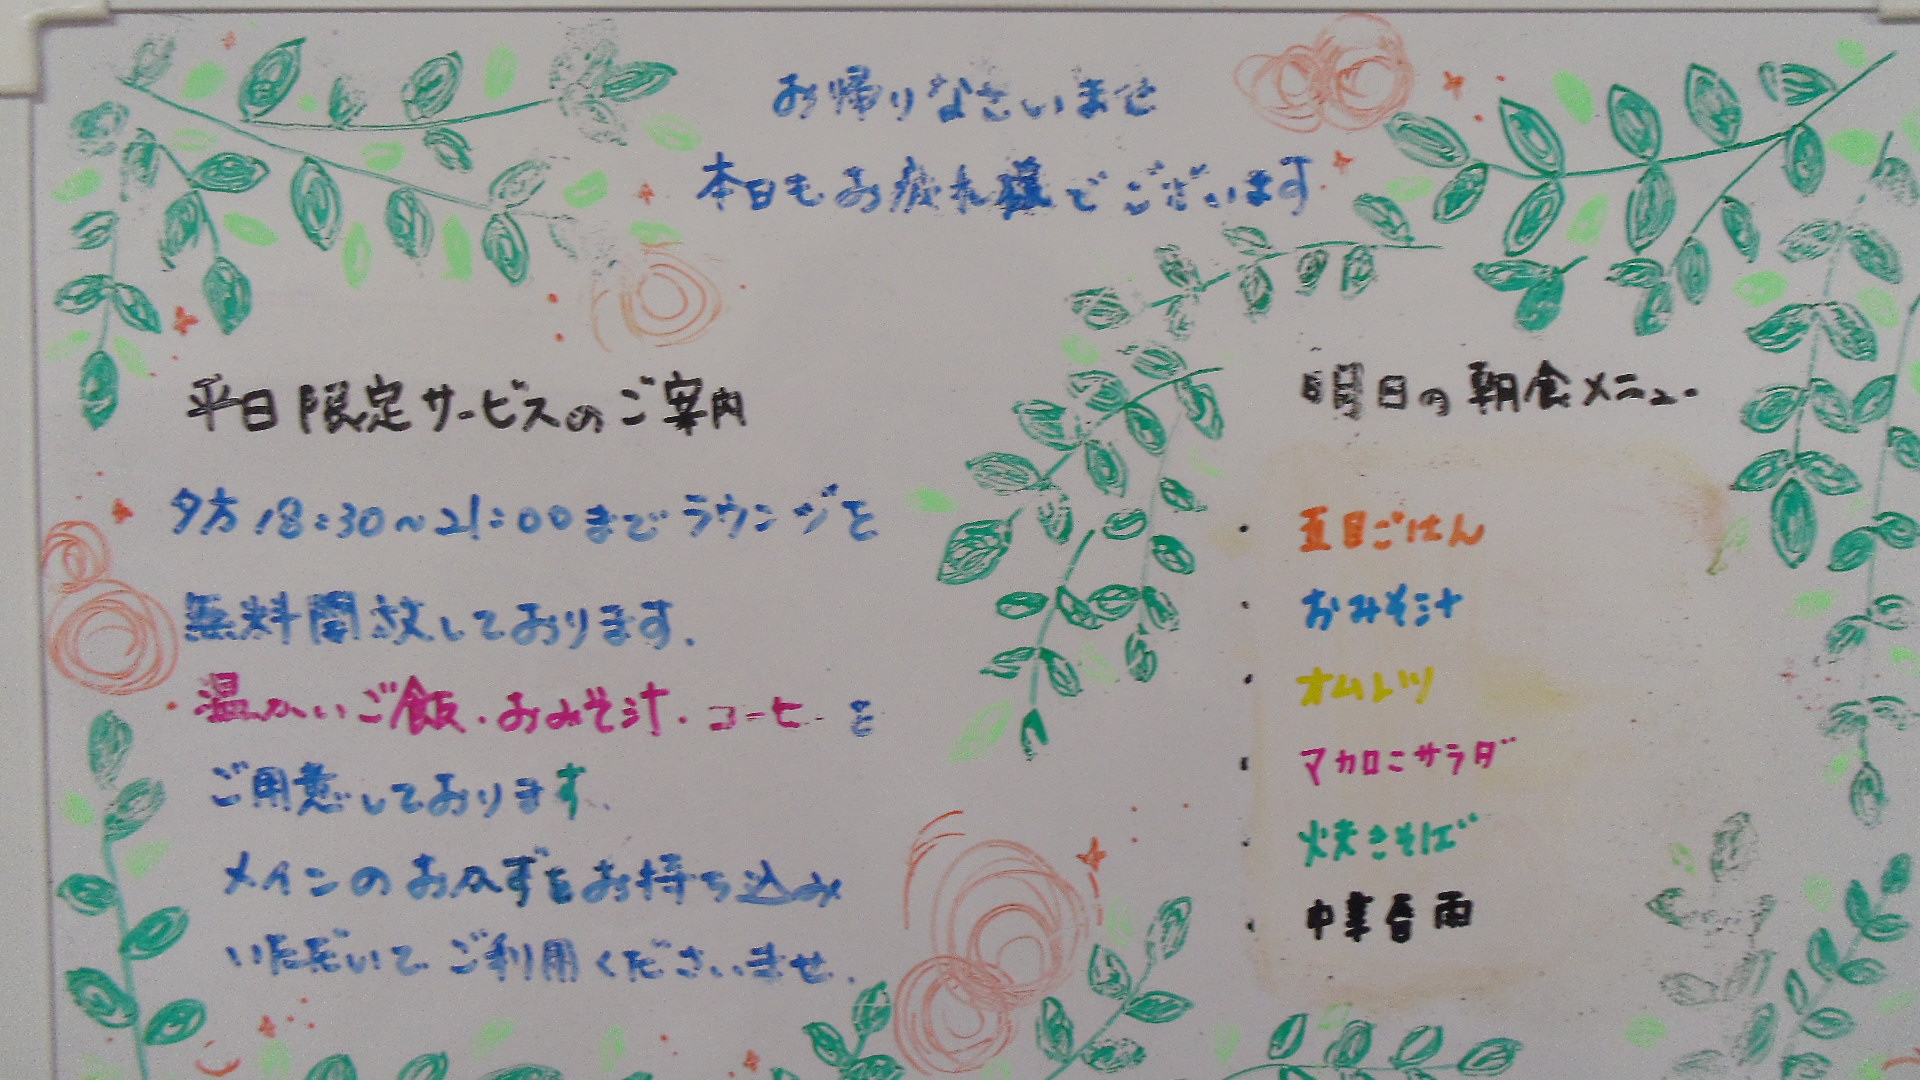 お帰りなさいませ
本日もお疲れ様でございます
平日限定サービスのご案内
夕方18:30〜21:00までラウンジを
無料開放しております.
温かいご飯・おみそ汁・コーヒーを
ご用意しております.
メインのおかずをお持ち込み
いただいてご利用くださいませ.
明日の朝食メニュー
・五目ごはん
・おみそ汁
・オムレツ
・マカロニサラダ
・焼きそば
・中華春雨